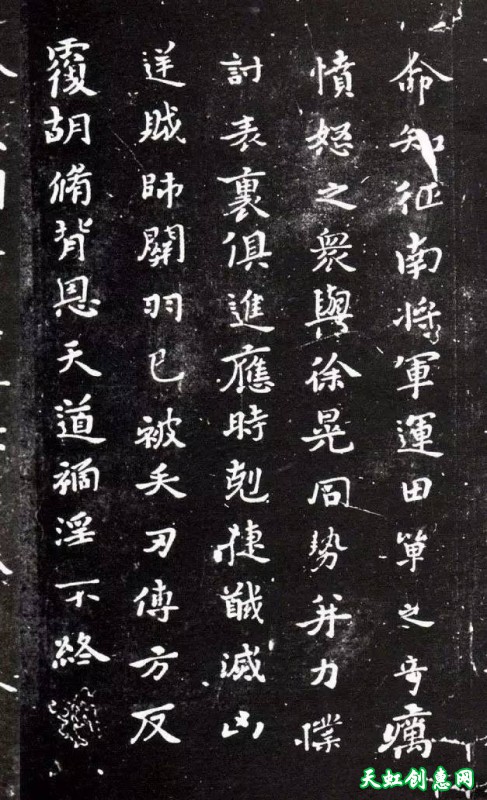 命知征南將軍運田單之奇厲
憤怒之衆與徐晃同勢并力撲
討表裏俱進應時剋捷馘滅凶
逆賊帥關羽已被矢刃傅方反
覆胡脩背恩天道禍淫不終
天虹创惠网